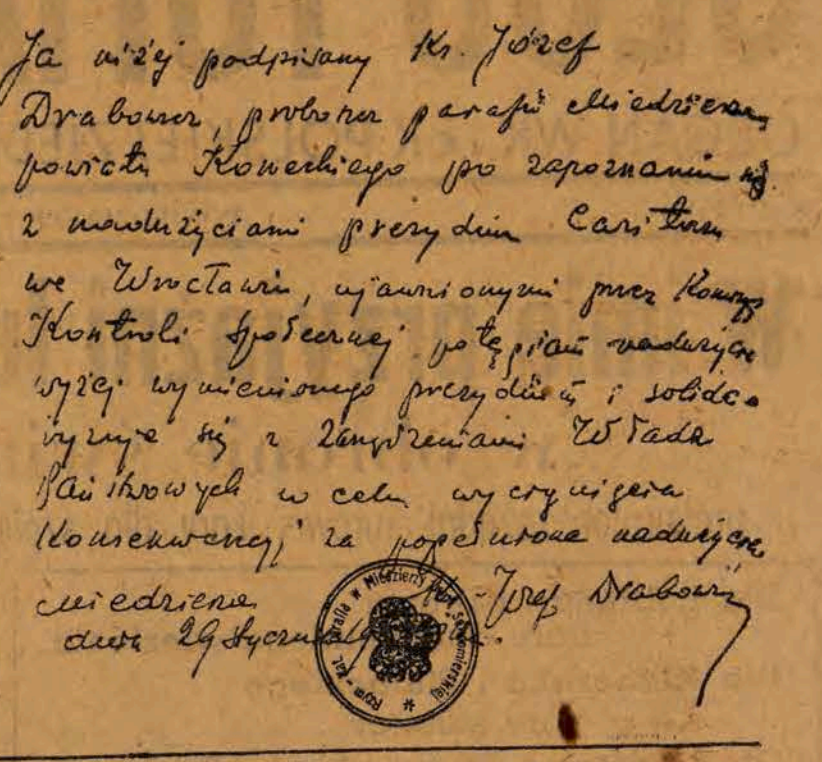 Ja niżej podpisany Ks. Józef
Drabowicz, proboszcz parafii Miedzierza,
powiatu Koneckiego po zapoznaniu się
z nadużyciami prezydium Caritasu
we Wrocławiu, ujawnionymi przez
Kontroli Społecznej potępiam nadużycia
wyżej wymienionego prezydium i solida-
ryzuję się z zarządzeniami Władz
Państwowych w celu wyciągnięcia
Konsekwencji za popełnione nadużycia.
Miedzierza
dnia 29 stycznia
Józef
Rzym-Kat. Parafia w Miedzierzy Sandomierskiej